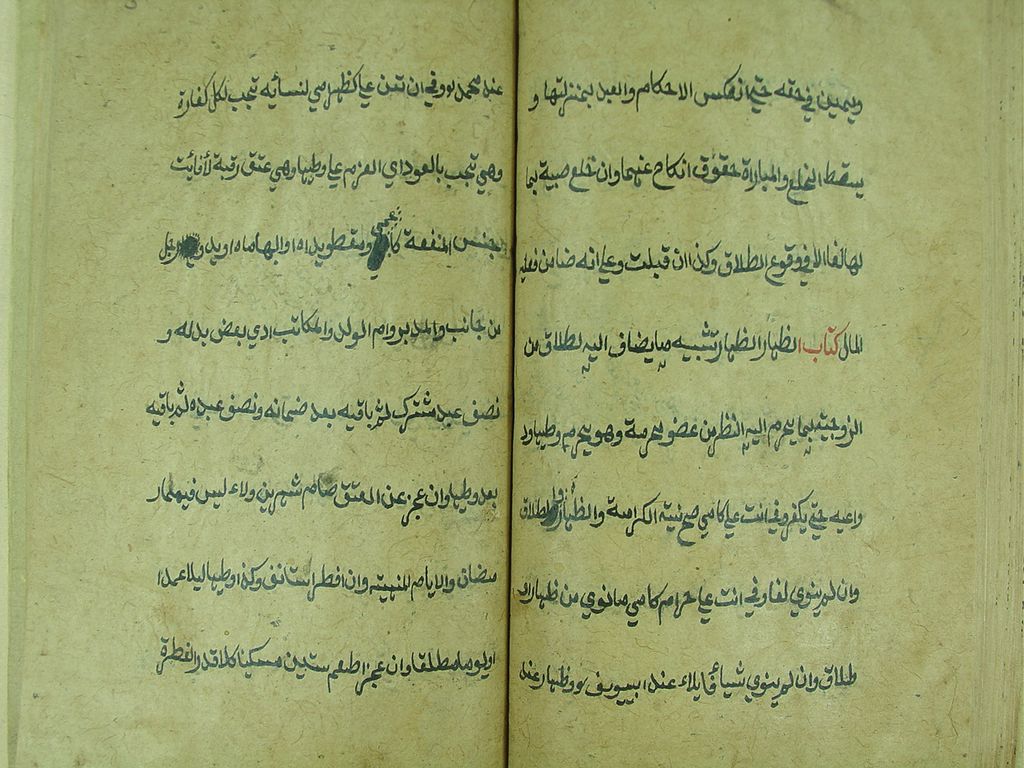 ويمين في حقه حتى انعكس الاحكام والعبد بمنزلتها و
يسقط الخلع والمباراة حقوق انكاح عنهما وان خلع صبية بما
لها لغا الا في وقوع الطلاق وكذا ان قبلت وعلى انه ضامن فعليه
المال كتاب الظهار الظهار تشبيه ما يضاف اليه لطلاق من
الزوجية بما يحرم اليه النظر من عضو محرمة وهو يحرم وطيها ود
واعيه حتى يكفر وفي انت علي كامي صح نية الكرامة والظهار والطلاق
وان لم ينوي لغا وفي انت علي حرام كامي ما نوي من ظهار او
طلاق وان لم ينوي شيأ فايلاء عند ابييوسف و وظهار عند
عند محمد ووفي ان تن علي كظهر امي لنسأيه تجب لكل كفارة
وهي تجب بالعود اي العزم على وطيها وهي عتق رقبة لا فائت
جنس المنفعة كاعمى ومقطو يداه او ابهاماه او يد ورجل
من جانب والمدبر وام الولد والمكاتب ادي بعض بدله و
نصف عبد مشترك ثم باقيه بعد ضمانه ونصف عبده ثم باقيه
بعد وطيها وان عجز عن العتق صام شهرين ولاء ليس فيهما ر
مضان والايام المنهيه وان افطر استانف وكذا وطيها ليلا عمدا
او يوما مطلقا وان عجز اطعم ستين مسكينا كلا قدر الفطرة